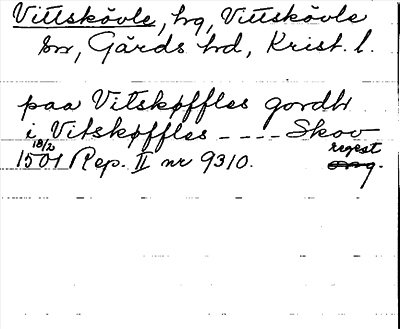 Vittskövle, hg, Vittskövle
sn, Gärds hd, Krist. l.
paa Vitskøffles gordh
i Vitskøffles ---- Skov
18/2 regest
1501 Rep. II nr 9310. org.